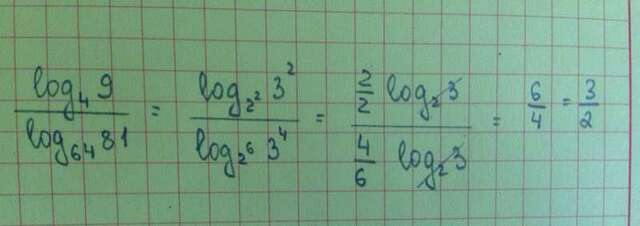 log₄ 9 / log₆₄ 81 = log_{2²} 3² / log_{2⁶} 3⁴ = (2/2 log₂ 3) / (4/6 log₂ 3) = 6/4 = 3/2